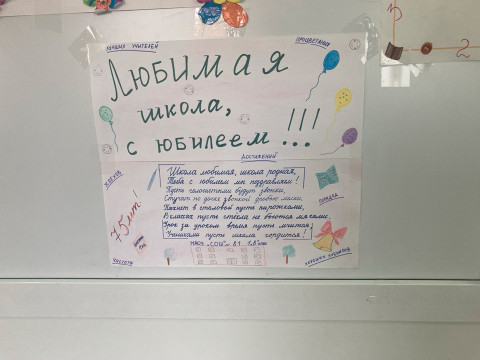 лучших учителей
процветания
Любимая
школа,
с юбилеем!!!
достижений
Школа любимая, школа родная,
Тебя с юбилеем мы поздравляем!
Пусть голосистыми будут звонки,
Стучат по доске звонкой дробью мелки.
Пахнет в столовой пусть пирожками,
В классах пусть стёкла не бьются мячами.
Урок за уроком время пусть мчится,
Учениками пусть школа гордится!
75 лет!
чистоты
хороших учеников
2